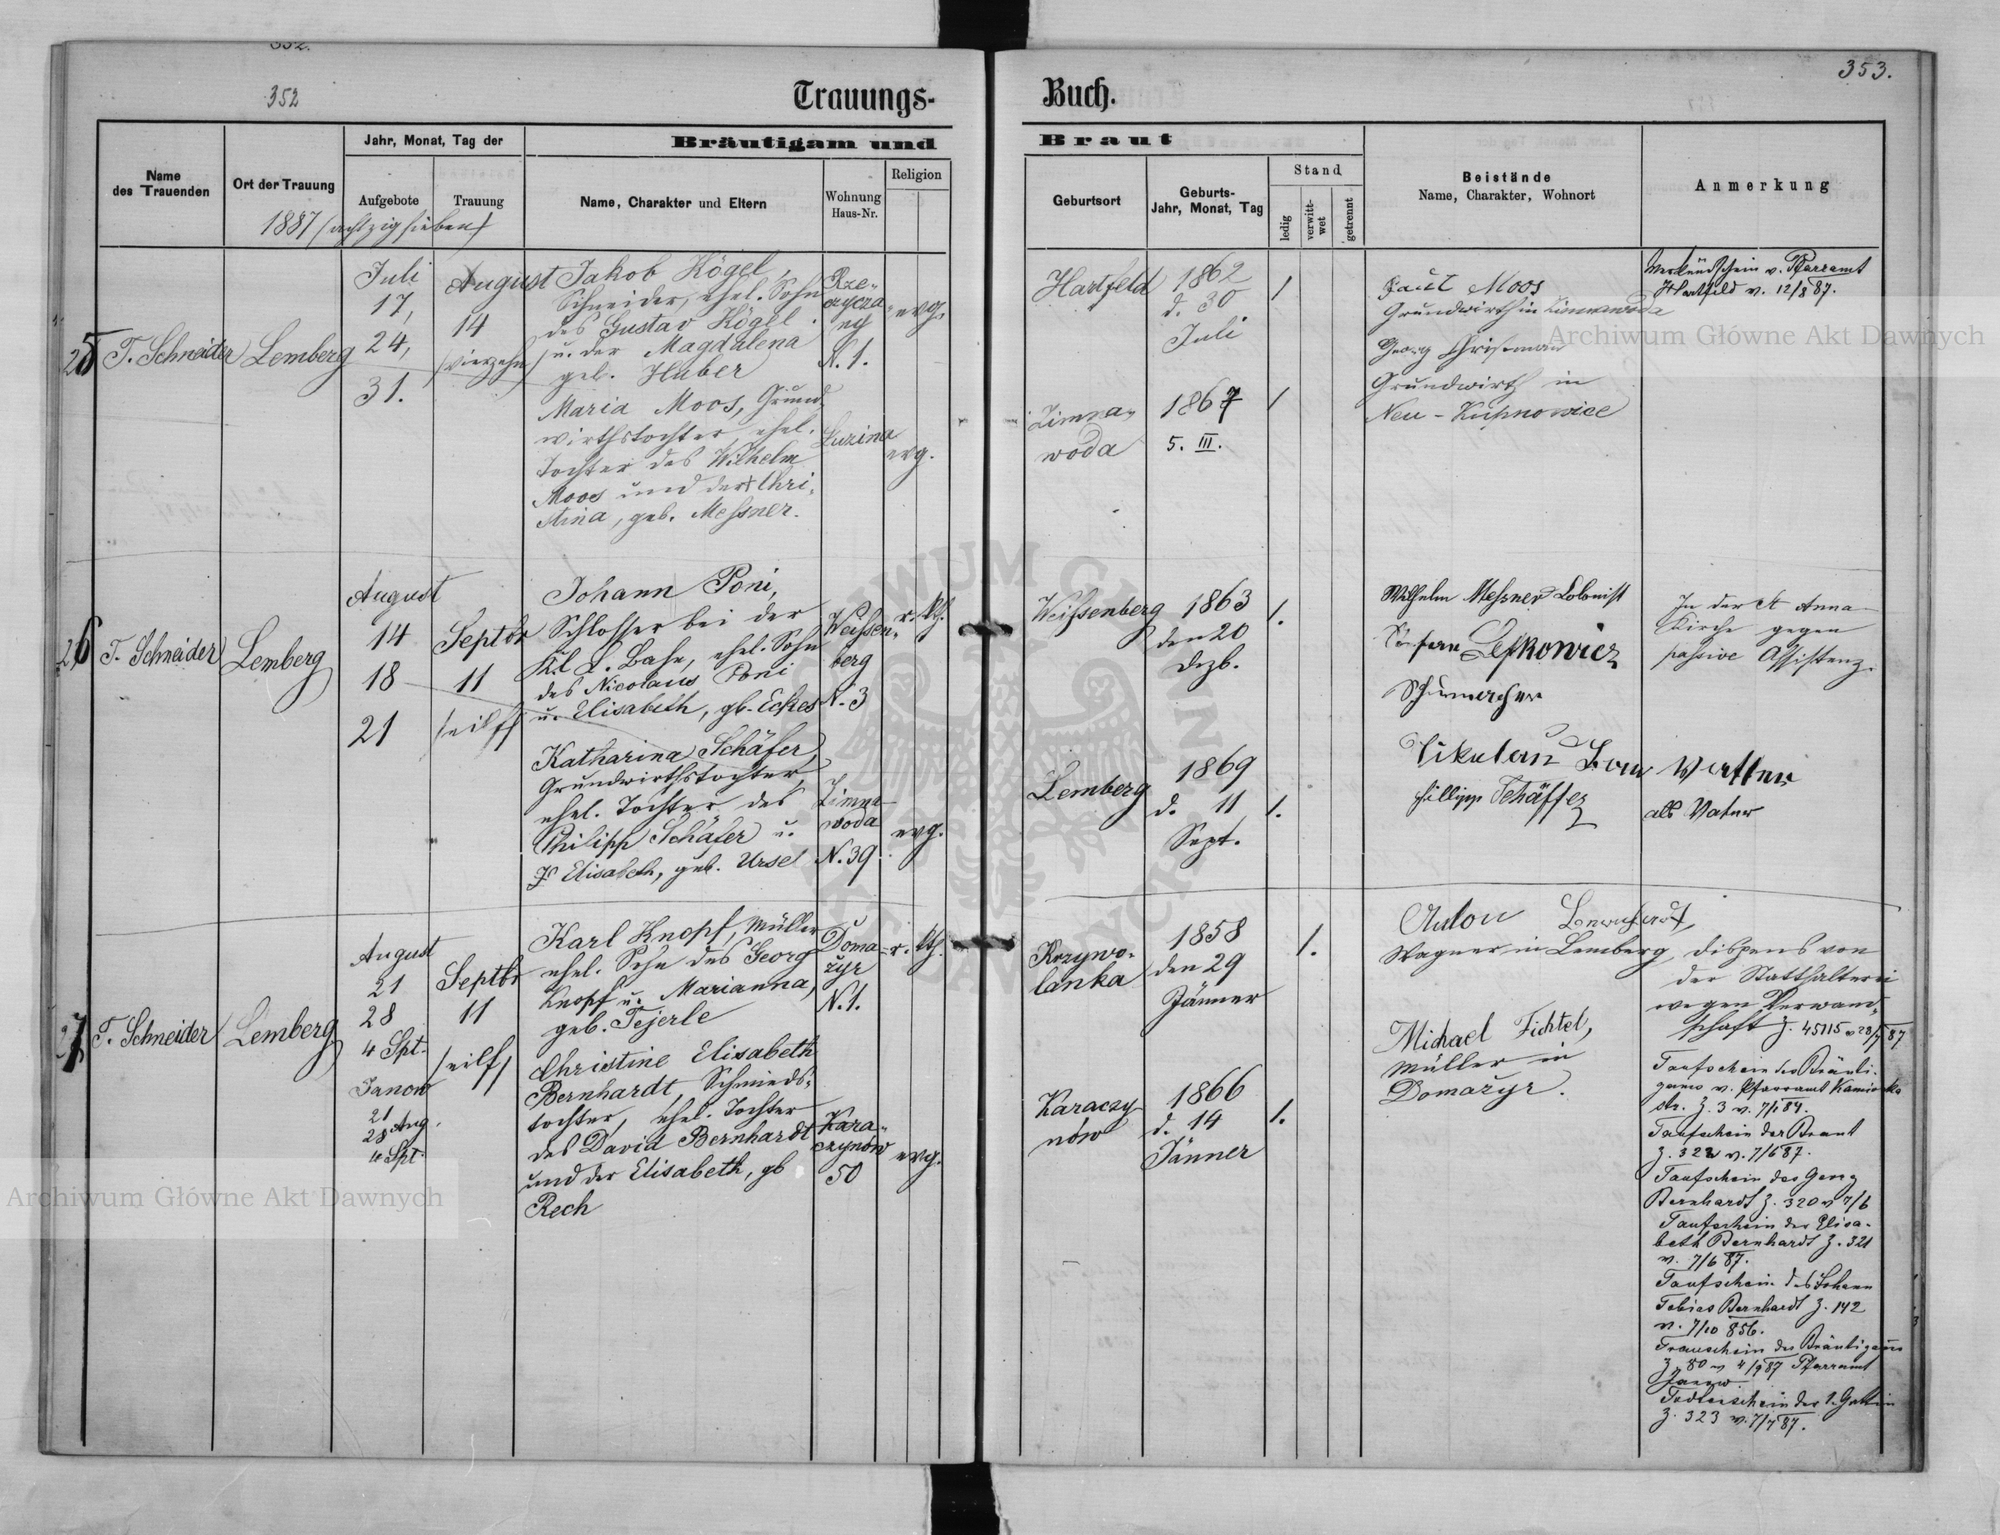 352.
352
Trauungs-
Name des Trauenden
Ort der Trauung
Jahr, Monat, Tag der
Aufgebote
Trauung
Bräutigam und
Name, Charakter und Eltern
Wohnung Haus-Nr.
Religion
1887 (achtzigsieben)
25
T. Schneider
Lemberg
Juli
17,
24,
31.
August
14
(vierzehn)
Jakob Kögel,
Schneider, ehel. Sohn
des Gustav Kögel
u. der Magdalena
geb. Huber
Rze-
czycza
N. 1.
evg.
Maria Moos, Grund-
wirthstochter, ehel.
Tochter des Wilhelm
Moos und der Chri-
stina, geb. Messner.
evg.
26
T. Schneider
Lemberg
August
14
18
21
Septbr
11
(eilf)
Johann Poni,
Schlosser bei der
K. L. Bahn, ehel. Sohn
des Nicolaus Poni
u. Elisabeth, gb. Eckes
Weissen-
berg
N. 3
r. kth.
Katharina Schäfer,
Grundwirthstochter,
ehel. Tochter des
Philipp Schäfer u.
Elisabeth, geb. Ursel
Zimna-
woda
N. 39
evg.
27
T. Schneider
Lemberg
August
21
28
4 Spt.
Janow
21
28 Aug.
4 Spt.
Septbr
11
(eilf)
Karl Knopf, Müller
ehel. Sohn des Georg
Knopf u. Marianna,
geb. Tejerle
Doma-
żyr
N. 1.
r. kth.
Christine Elisabeth
Bernhardt, Schmieds-
tochter, ehel. Tochter
des David Bernhardt
und der Elisabeth, gb
Rech
Kara-
czynów
50
evg.
353.
Buch.
Braut
Geburtsort
Geburts-
Jahr, Monat, Tag
Stand
ledig
verwitt-
wet
getrennt
Beistände
Name, Charakter, Wohnort
Anmerkung
Hartfeld
1862
d. 30
Juli
/
Moos
Grundwirth in Zimnawoda
Georg Chrisman
Grundwirth in
Neu-Kupnowice
Verkündschein v. Pfarramt
Hartfeld v. 12/8 87.
Zimna-
woda
1867
5. III.
/
Weissenberg
1863
den 20
Dezb.
/.
Wilhelm Messner Kolonist
Lefkowicz
Schumacher
In der St Anna
Kirche gegen
passive Assistenz.
Lemberg
1869
d. 11
Sept.
/.
Phillipp Schäffer
als Vater
Krzywo-
lanka
1858
den 29
Jänner
/.
Anton
Wagner in Lemberg
Michael Fichtel,
Müller in
Domażyr.
Karaczy-
nów
1866
d. 14
Jänner
/.
Dispens von
der Statthalterei
wegen Verwand-
schaft Z. 45115 v 28/7 87
Taufschein des Bräuti-
gams v. Pfarramt Kamionka
str. Z. 3 v. 7/1 84.
Taufschein der Braut
Z. 322 v. 7/6 87.
Taufschein des Georg
Bernhardt Z. 320 v 7/6
Taufschein der Elisa-
beth Bernhardt Z. 321
v. 7/6 87.
Taufschein des Johann
Tobias Bernhardt Z. 142
v. 7/10 856.
Trauschein des Bräutigams
Z. 80 v 4/9 87 Pfarramt
Janow
Todtenschein der 1. Gattin
Z. 323 v. 7/7 87.
Archiwum Główne Akt Dawnych
Archiwum Główne Akt Dawnych